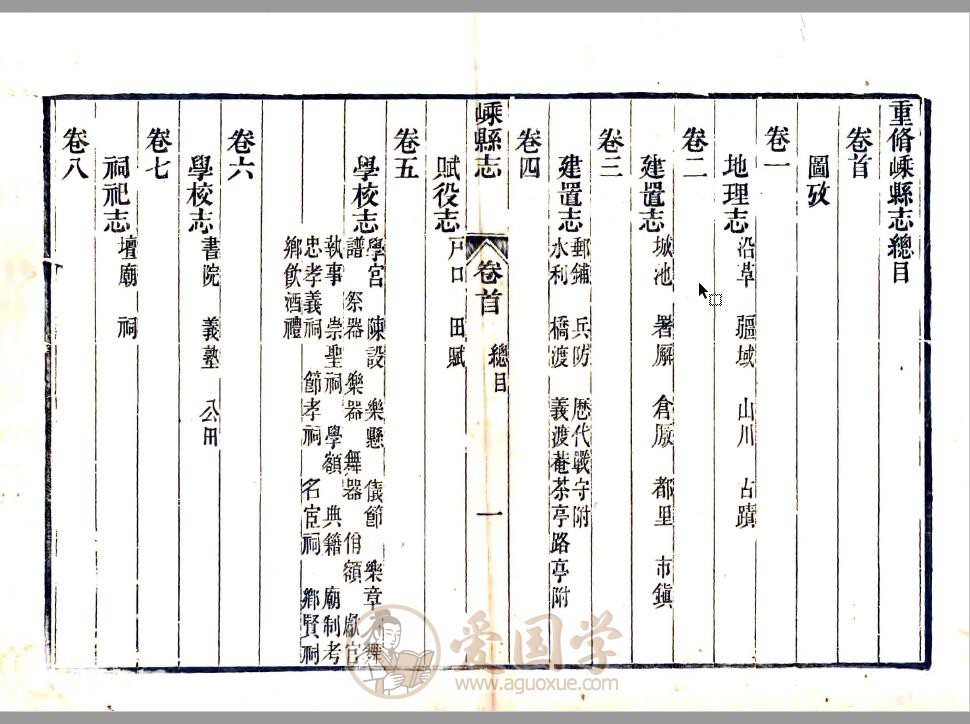 重脩嵊縣志總目
卷首
圖攷
卷一
地理志 沿革 疆域 山川 古蹟
卷二
建置志 城池 署廨 倉厫 都里 市鎮
卷三
建置志 郵鋪 兵防 歷代戰守附
水利 橋渡 義渡菴茶亭路亭附
卷四
嵊縣志 卷首 總目 一
賦役志 戸口 田賦
卷五
學校志 學宮 陳設 樂懸 儀節 樂章 舞
譜 祭器 樂器 舞器 佾額 獻官
執事 崇聖祠 學額 典籍 廟制考
忠孝義祠 節孝祠 名宦祠 鄉賢祠
鄉飲酒禮
卷六
學校志 書院 義塾 公田
卷七
祠祀志 壇廟 祠
卷八
爱国学
www.aguoxue.com